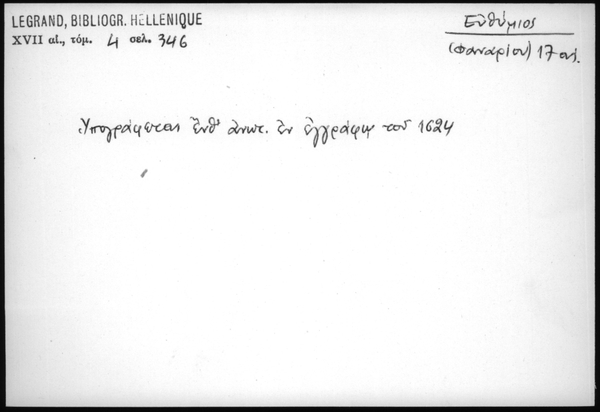 LEGRAND, BIBLIOGR. HELLENIQUE
XVII αἰ., τόμ. 4 σελ. 346
Εὐθύμιος
(Φαναρίου) 17 αἰ.
Ὑπογράφεται ἔνθ' ἀνωτ. ἐν ἐγγράφῳ τοῦ 1624